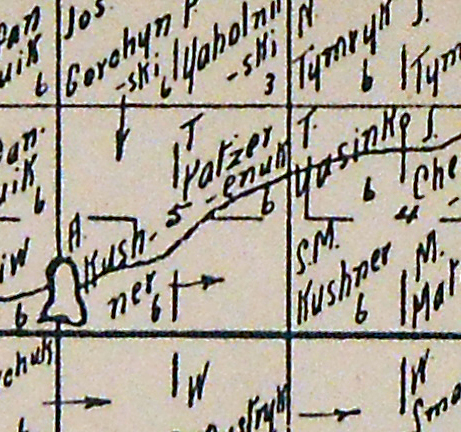 Jos.
Gorchyn
-ski
6
Yaholni
-ski
3
N.
Tymryk
6
J.
Tym
uik
6
T
Yatzer
-enuk
6
T.
Yasinke
6
J.
Che
uik
6
5
4
A.
Kush-
ner
6
S.M.
Kushner
6
M.
Mar
iw
6
chuk
W
stryk
W
Sma